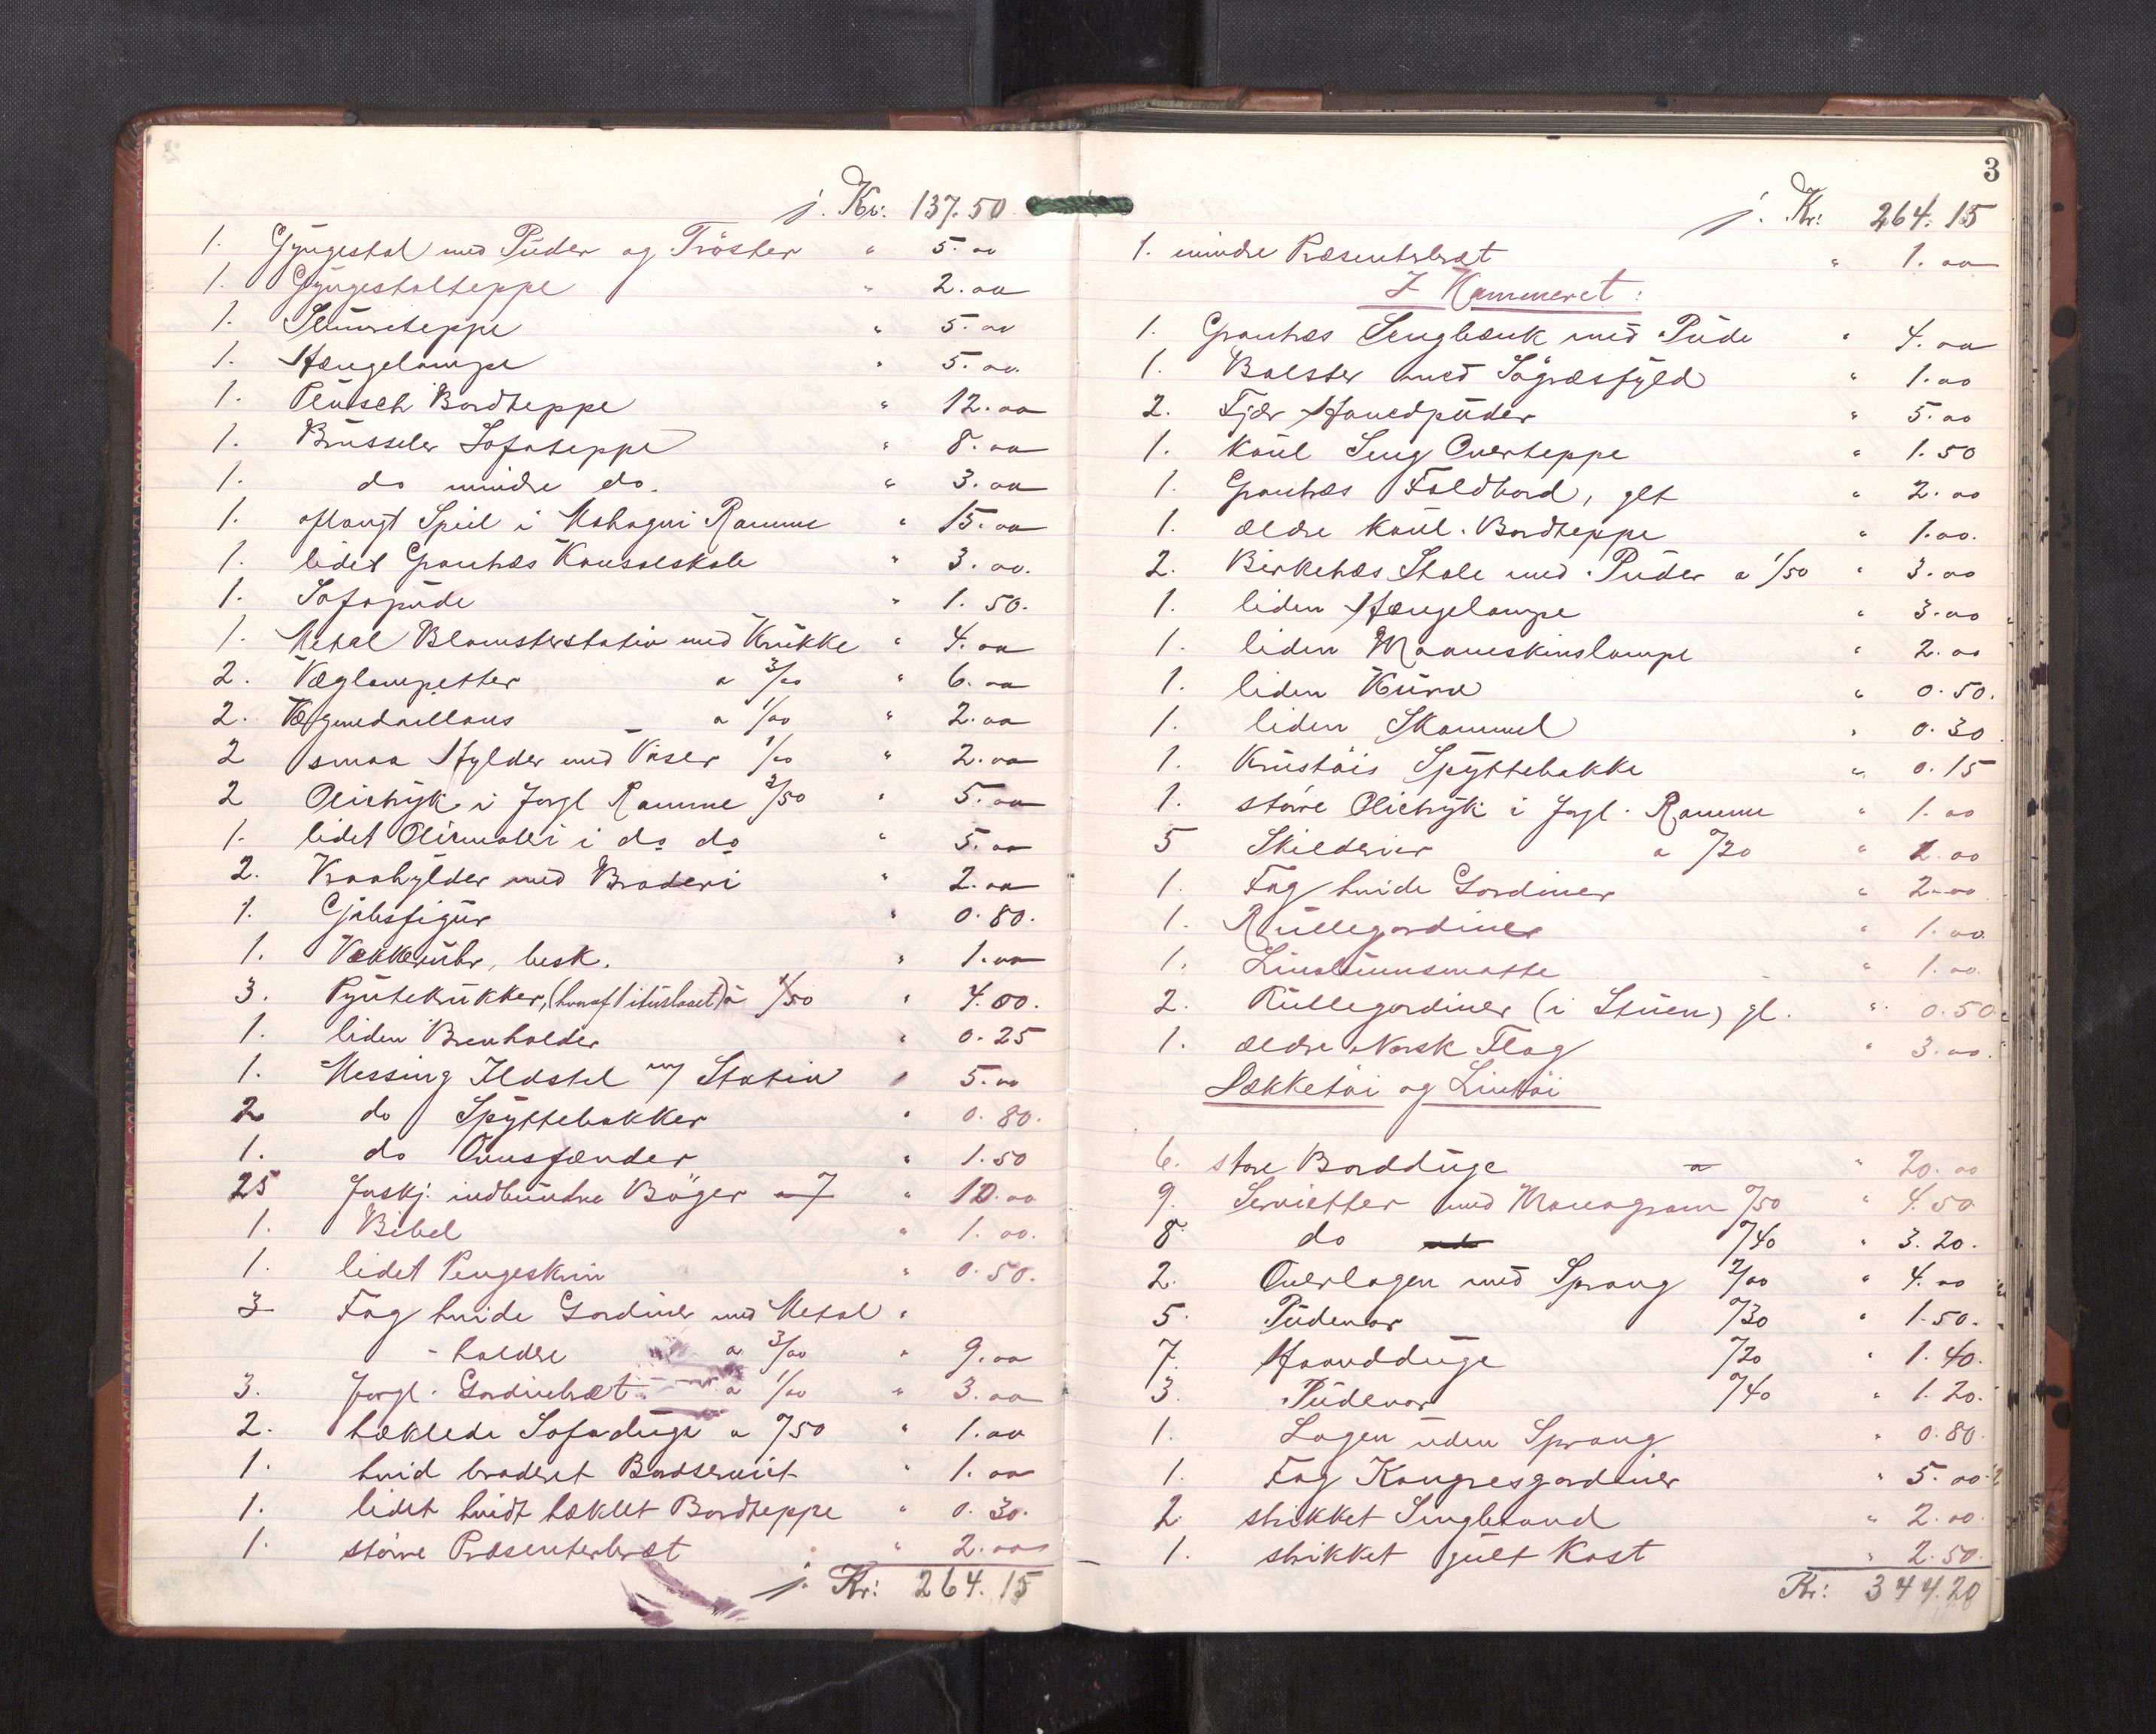 j. Kr. 137.50
1. Gyngestol med Puder og Tröster " 5.00
1. Gyngestolteppe " 2.00
1. Slumreteppe " 5.00
1. Hængelampe " 5.00
1. Plüsch Bordteppe " 12.00
1. Brüsseler Sofateppe " 8.00
1. do mindre do. " 3.00
1. aflangt Speil i Mahogni Ramme " 15.00
1. lidet Grantræs Konsolskab " 3.00.
1. Sofapude " 1.50.
1. Metal Blomsterstativ med Krukke " 4.00
2. Væglampetter a 3/00 " 6.00
2. Vægmedaillons a 1/00 " 2.00
2 smaa Hylder med Vaser 1/00 " 2.00
2 Olietryk i forgl Ramme 2/50 " 5.00
1. lidet Oliemaleri i do do " 5.00
2. Kraahylder med Broderi " 2.00
1. Gibsfigur " 0.80.
1. Vækkeruhr, besk. " 1.00
3. Pyntekrukker, (hvoraf 1 ituslaaet) a /50 " 4.00.
1. liden Brevholder " 0.25
1. Messing Ildstel m/ Stativ " 5.00
2 do Spyttebakker " 0.80.
1. do Ovnsfænder " 1.50
25 forskj. indbundne Böger a 7 " 10.00
1. Bibel " 1.00.
1. lidet Pengeskrin " 0.50.
3 Fag hvide Gardiner med Metal "
- holdre a 3/00 " 9.00
3. forgl. Gardinbræt a 1/00 " 3.00
2. hæklede Sofaduge a 0/50 " 1.00
1. hvid broderet Bordserviet " 1.00
1. lidet hvidt hæklet Bordteppe " 0.30.
1. större Præsenterbræt " 2.00
j. Kr: 264.15
3
j. Kr: 264.15
1. mindre Præsenterbræt " 1.00
I Kammeret:
1. Grantræs Sengbænk med Pude " 4.00
1. Bolster med Sögræsfyld " 1.00
2. Fjær Hovedpuder " 5.00
1. koul Seng Overteppe " 1.50
1. Grantræs Foldbord, glt " 2.00
1. ældre koul. Bordteppe " 1.00.
2. Birketræs Stole med Puder a 1/50 " 3.00
1. liden Hængelampe " 3.00
1. liden Maaneskinslampe " 2.00
1. liden Kurv " 0.50.
1. liden Skammel " 0.30
1. Krustöis Spyttebakke " 0.15
1. större Olietryk i forgl. Ramme " 1.00
5 Skilderier a 0/20 " 1.00
1. Fag hvide Gardiner " 2.00
1. Rullegardiner " 1.00
1. Linoliumsmatte " 1.00.
2. Rullegardiner (i Stuen) gl. " 0.50
1. ældre Norsk Flag " 3.00.
Dækketöi og Lintöi
6. store Bordduge a " 20.00
9. Servietter med Monogram 0/50 " 4.50
8. do 0/40 " 3.20.
2. Overlagen med Sprang 2/00 " 4.00
5. Pudevar 0/30 " 1.50.
7. Haandduge 0/20 " 1.40.
3. Pudevar 0/40 " 1.20.
1. Lagen uden Sprang " 0.80.
1. Fag Kongresgardiner " 5.00
2 strikket Sengbaand " 2.00.
1. strikket gult Kast " 2.50.
Kr: 344.20